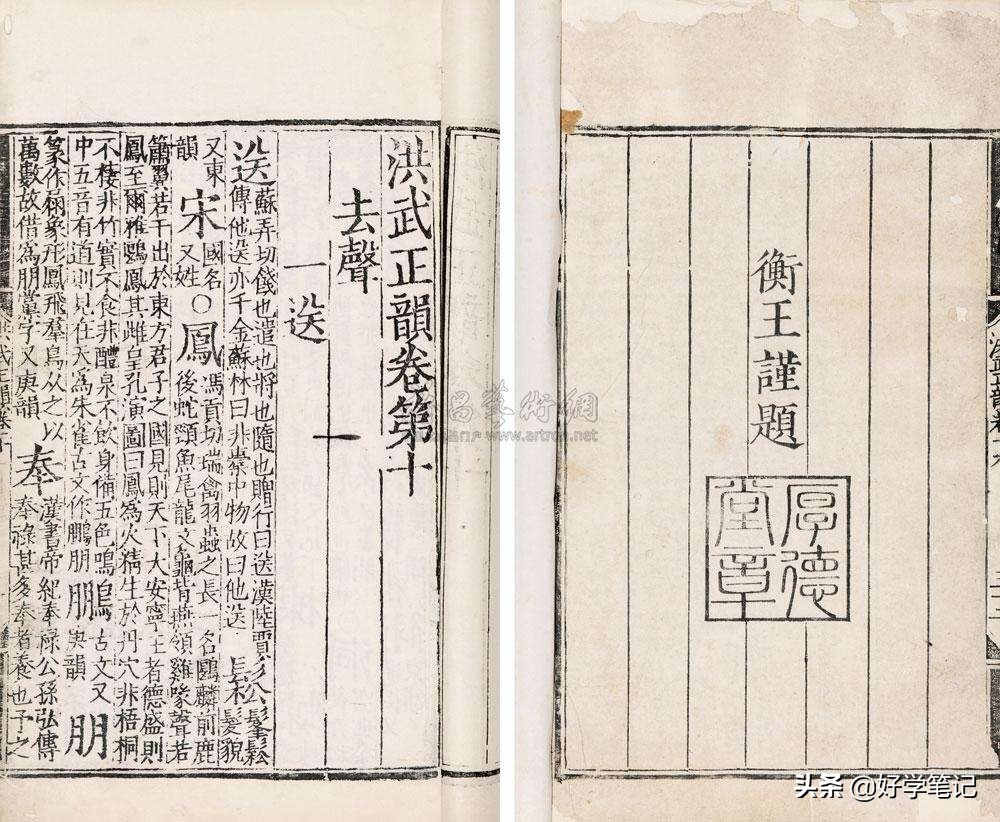 洪武正韻卷第十
去聲
一送
送 蘇弄切餞也遣也將也隨也贈行曰送漢陸賈
傳他送亦千金蘇林曰非橐中物故曰他送
鬆 鬅鬆
髮貌
又東
韻
宋 國名
又姓
○鳳 馮貢切瑞禽羽蟲之長一名鶠麟前鹿
後蛇頸魚尾龍文龜背燕頷雞喙聲若
簫翼若干出於東方君子之國見則天下大安寧王者德盛則
鳳至爾雅鶠鳳其雌皇孔演圖曰鳳為火精生於丹穴非梧桐
不棲非竹實不食非醴泉不飲身備五色鳴
中五音有道則見在天為朱雀古文作鵬朋
鵬 古文又
朋 庚韻
朋
篆作象形鳳飛羣鳥從之以
萬數故借為朋黨字又庚韻
奉 漢書帝紀奉祿公孫弘傳
奉祿甚多奉者養也予之
洪武正韻卷十
衡王謹題
厚德堂章
頭条 @好学笔记